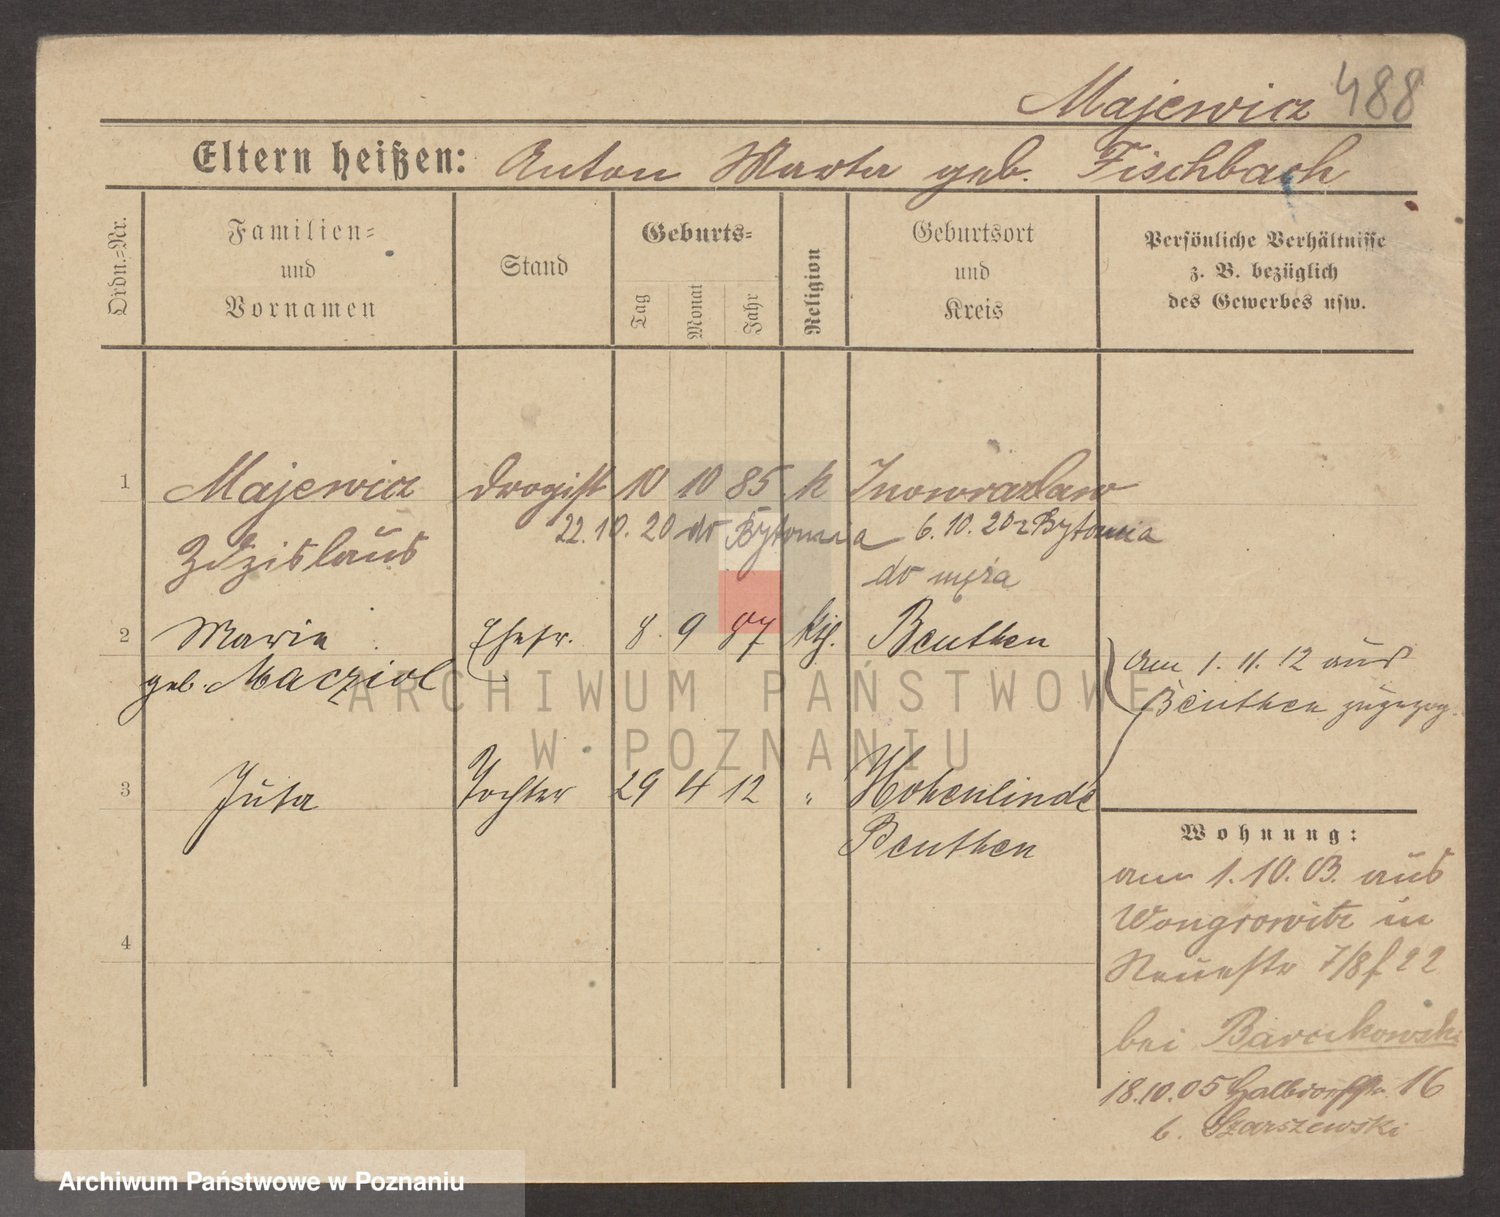 Majewicz 488
Eltern heißen: Anton Marta geb. Fischbach
Ordn.-Nr.
Familien-
und
Vornamen
Stand
Geburts-
Tag
Monat
Jahr
Religion
Geburtsort
und
Kreis
Persönliche Verhältnisse
z. B. bezüglich
des Gewerbes usw.
1 Majewicz Drogist 10 10 85 k Inowrazlaw
22.10.20 do Bytomia 6.10.20 z Bytomia
Zdzislaus do męża
2 Marie Ehefr. 8. 9 87 kth. Beuthen
geb. Macziol
am 1. 11. 12 aus
Beuthen zugezog.
3 Juta Tochter 29 4 12 " Hohenlinde
Beuthen
4
Wohnung:
am 1.10.03. aus
Wongrowitz in
Neuestr 7/8 f 22
bei Barcikowski
18.10.05 16
b. Szarszewski
ARCHIWUM PAŃSTWOWE
W POZNANIU
Archiwum Państwowe w Poznaniu